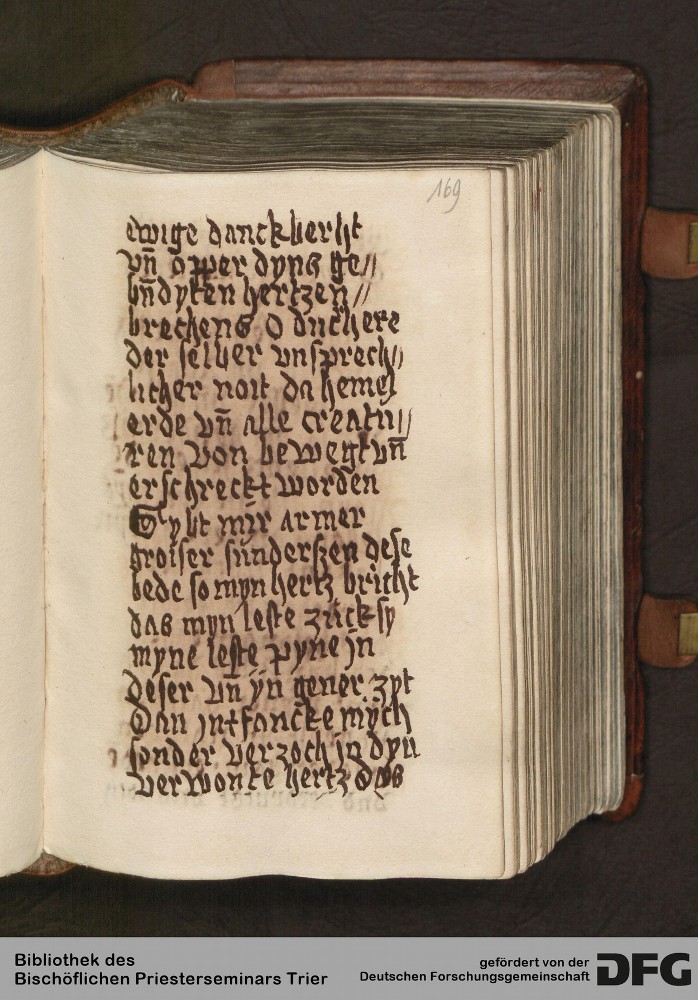 169
ewige danckberḣt
vn̄ opper dyns ge//
bn̄dyten hertzen̄//
brechens O duchere
der selber vnsprech//
licher noit da hemel
erde vn̄ alle creatu//
ren von bewegt vn̄
erschreckt worden
Gybt mir armer
groiser sunderszen dese
bede so myn hertz bricht
das myn leste zuck sy
myne leste pyne jn
deser vn̄ yn gener zyt
Dan jntfancke mych
sonder verzoch jn dyn
verwonte hertz das
Bibliothek des
Bischöflichen Priesterseminars Trier
gefördert von der
Deutschen Forschungsgemeinschaft
DFG